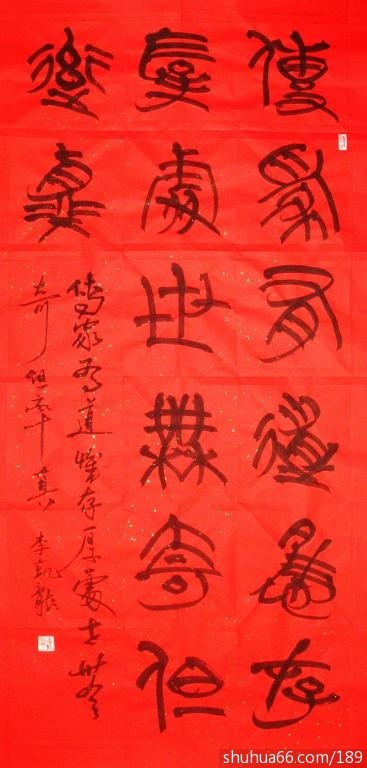 傳家有道惟存
厚處世無奇但
率真
傳家有道惟存厚處世無
奇但率真 李凱龍
shuhua66.com/189